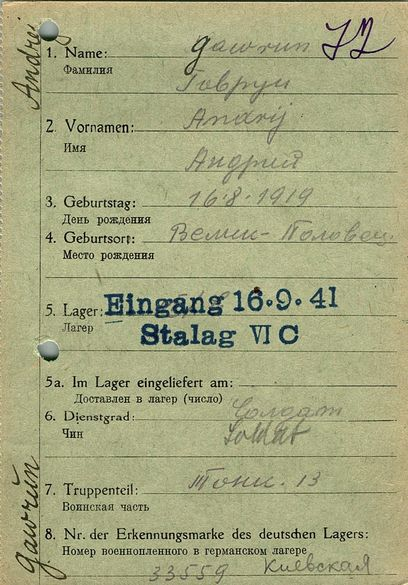 1. Name: Gawrun
Фамилия
Говрун
2. Vornamen: Andrij
Имя
Андрий
3. Geburtstag: 16·8·1919
День рождения
4. Geburtsort: Велик-Половец
Место рождения
5. Lager:
Лагер
Eingang 16.9.41
Stalag VI C
5a. Im Lager eingeliefert am:
Доставлен в лагер (число)
6. Dienstgrad: Солдат
Чин
Soldat
7. Truppenteil: 13
Воинская часть
8. Nr. der Erkennungsmarke des deutschen Lagers:
Номер военнопленного в германском лагере
33559 Киевская
Andrej
Gawrun